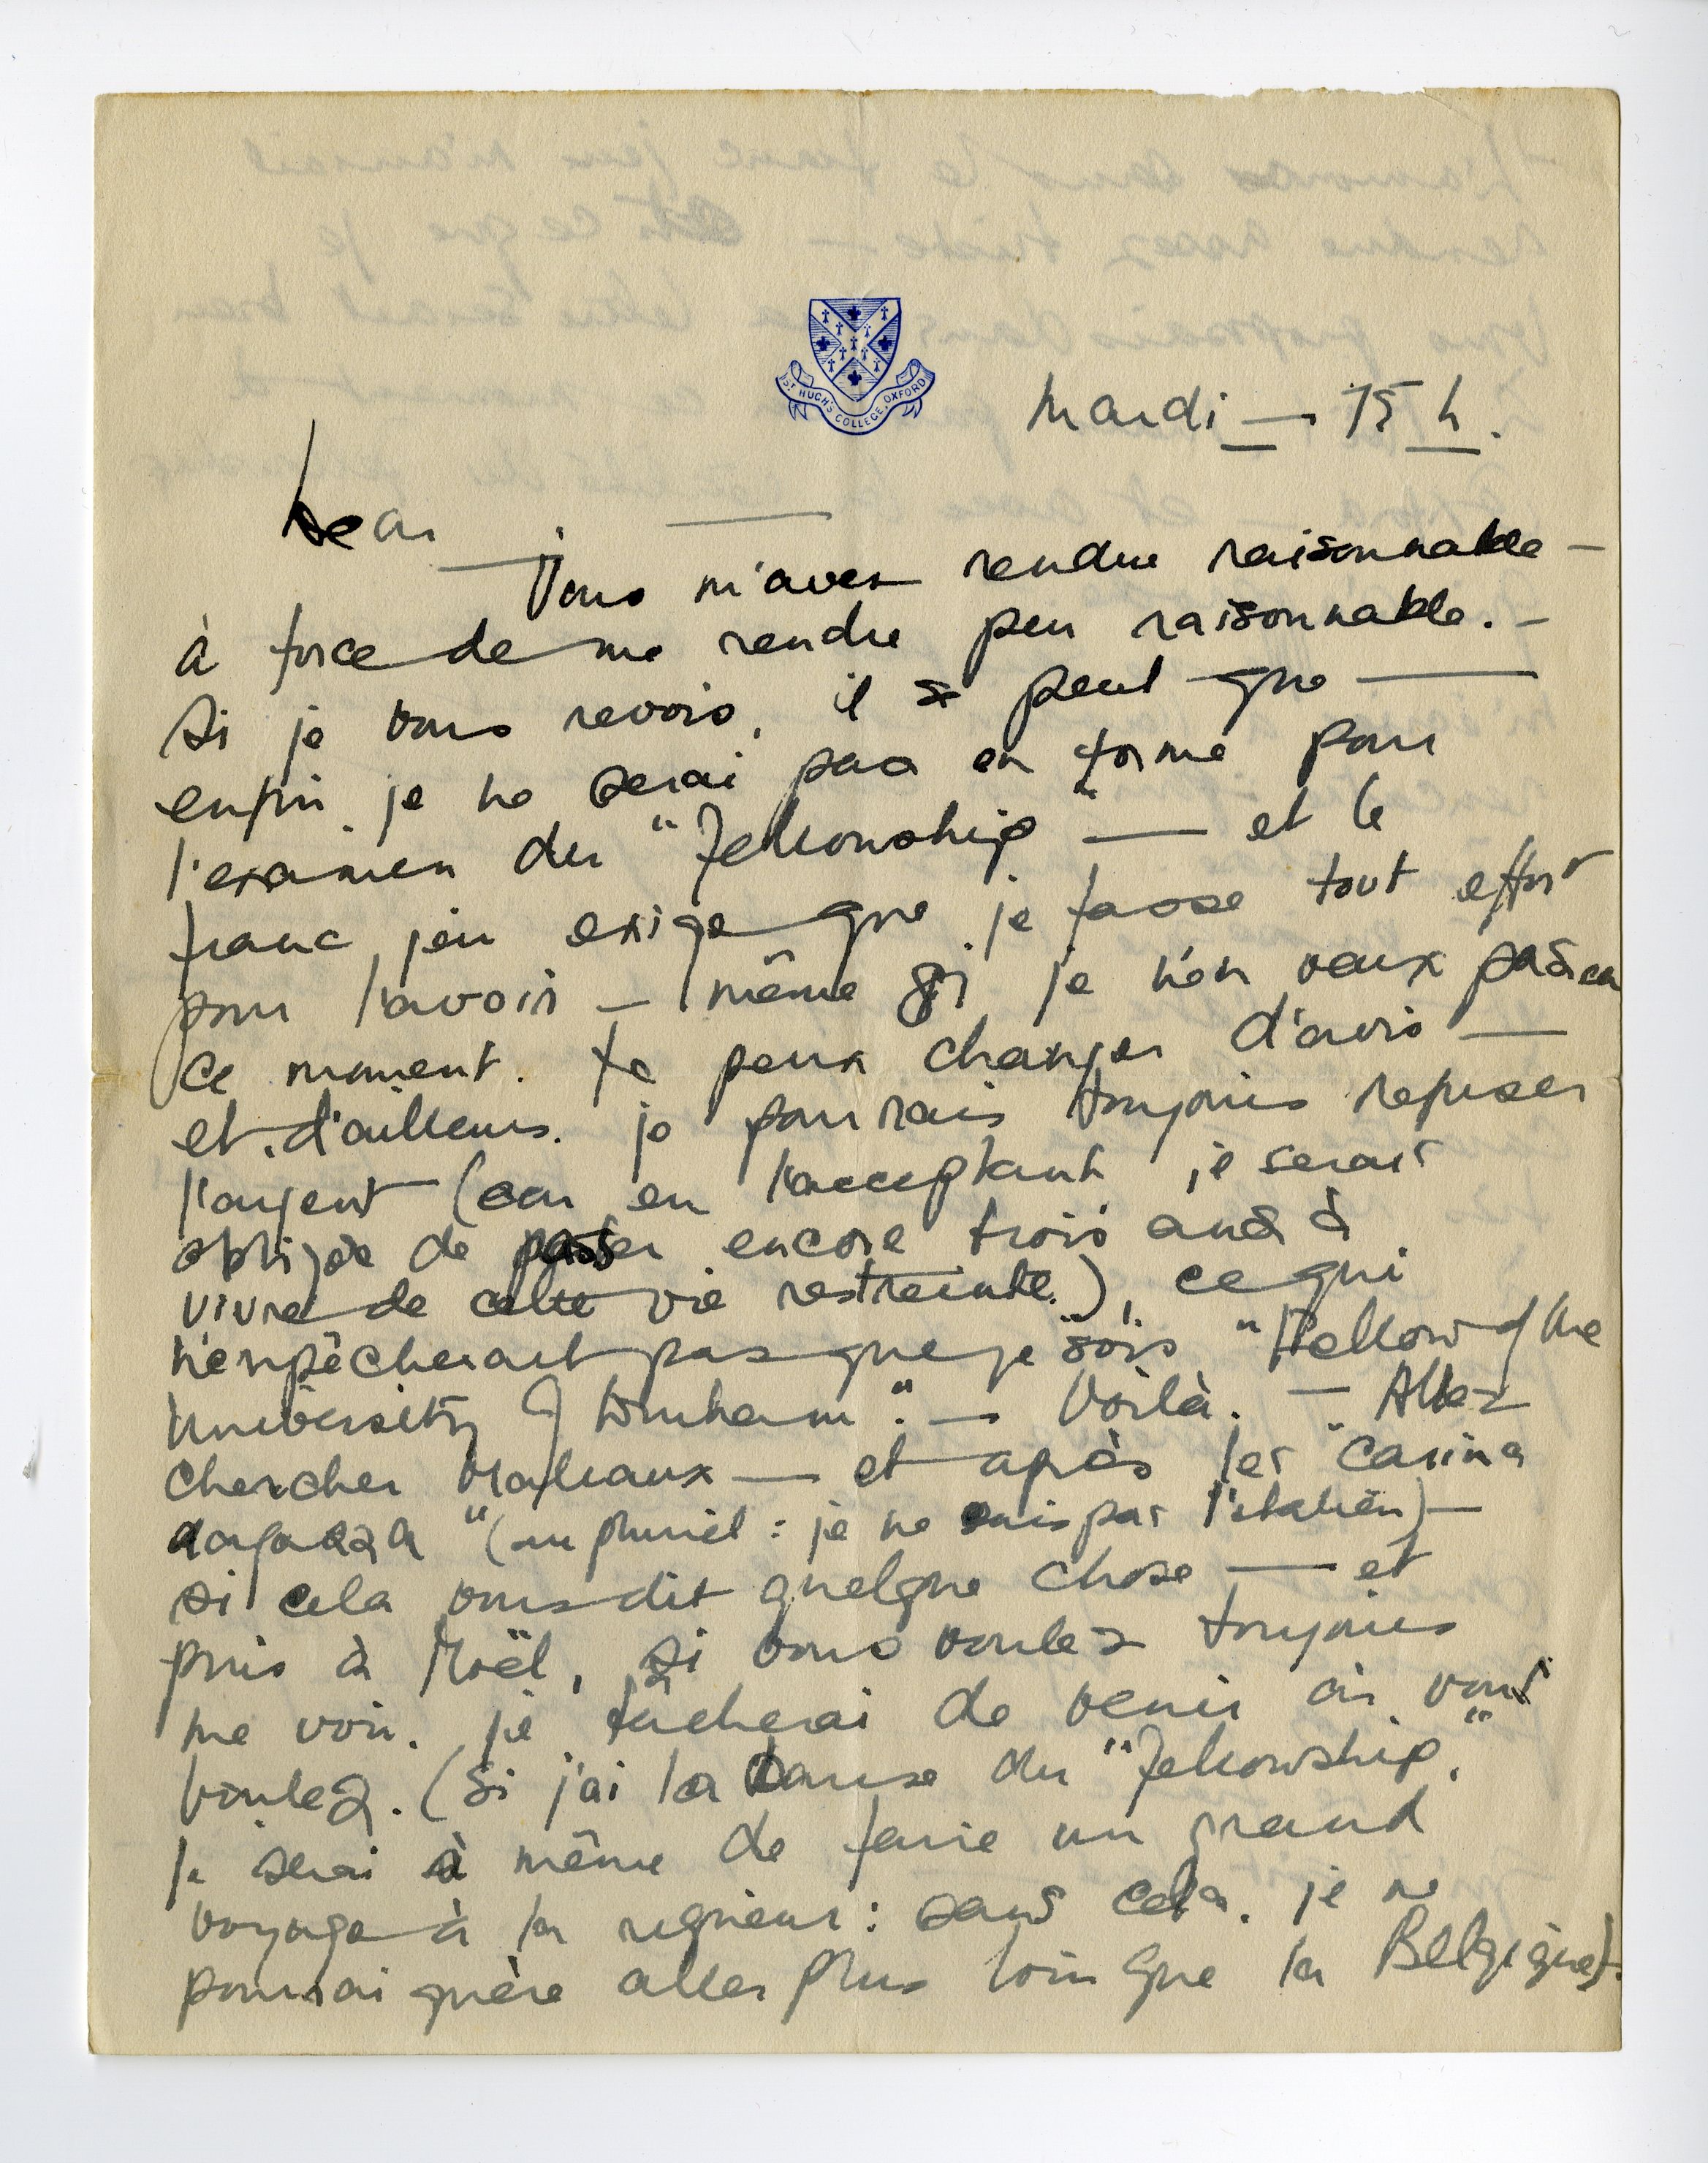 ST HUGH'S COLLEGE, OXFORD
Mardi — 15 h.
Dear — —
Vous m'avez rendue raisonnable —
à force de me rendre peu raisonnable. —
Si je vous revois, il se peut que —
enfin je ne serai pas en forme pour
l'examen du "Fellowship" — et le
franc jeu exige que je fasse tout effort
pour l'avoir — même si je n'en veux pas en
ce moment. Je peux changer d'avis —
et d'ailleurs je pourrais toujours refuser
l'argent (car en l'acceptant je serais
obligée de passer encore trois ans à
vivre de cette vie restreinte), ce qui
n'empêcherait pas que je sois "Fellow of the
University of Durham". — Voilà. — Allez
chercher Malraux — et après les "carina
ragazza" (au pluriel : je ne sais pas l'italien) —
si cela vous dit quelque chose — et
puis à Noël, si vous voulez toujours
me voir, je tâcherai de venir où vous
voulez. (Si j'ai la chance du "Fellowship",
je serai à même de faire un grand
voyage à la rigueur : sans cela, je ne
pourrai guère aller plus loin que la Belgique).